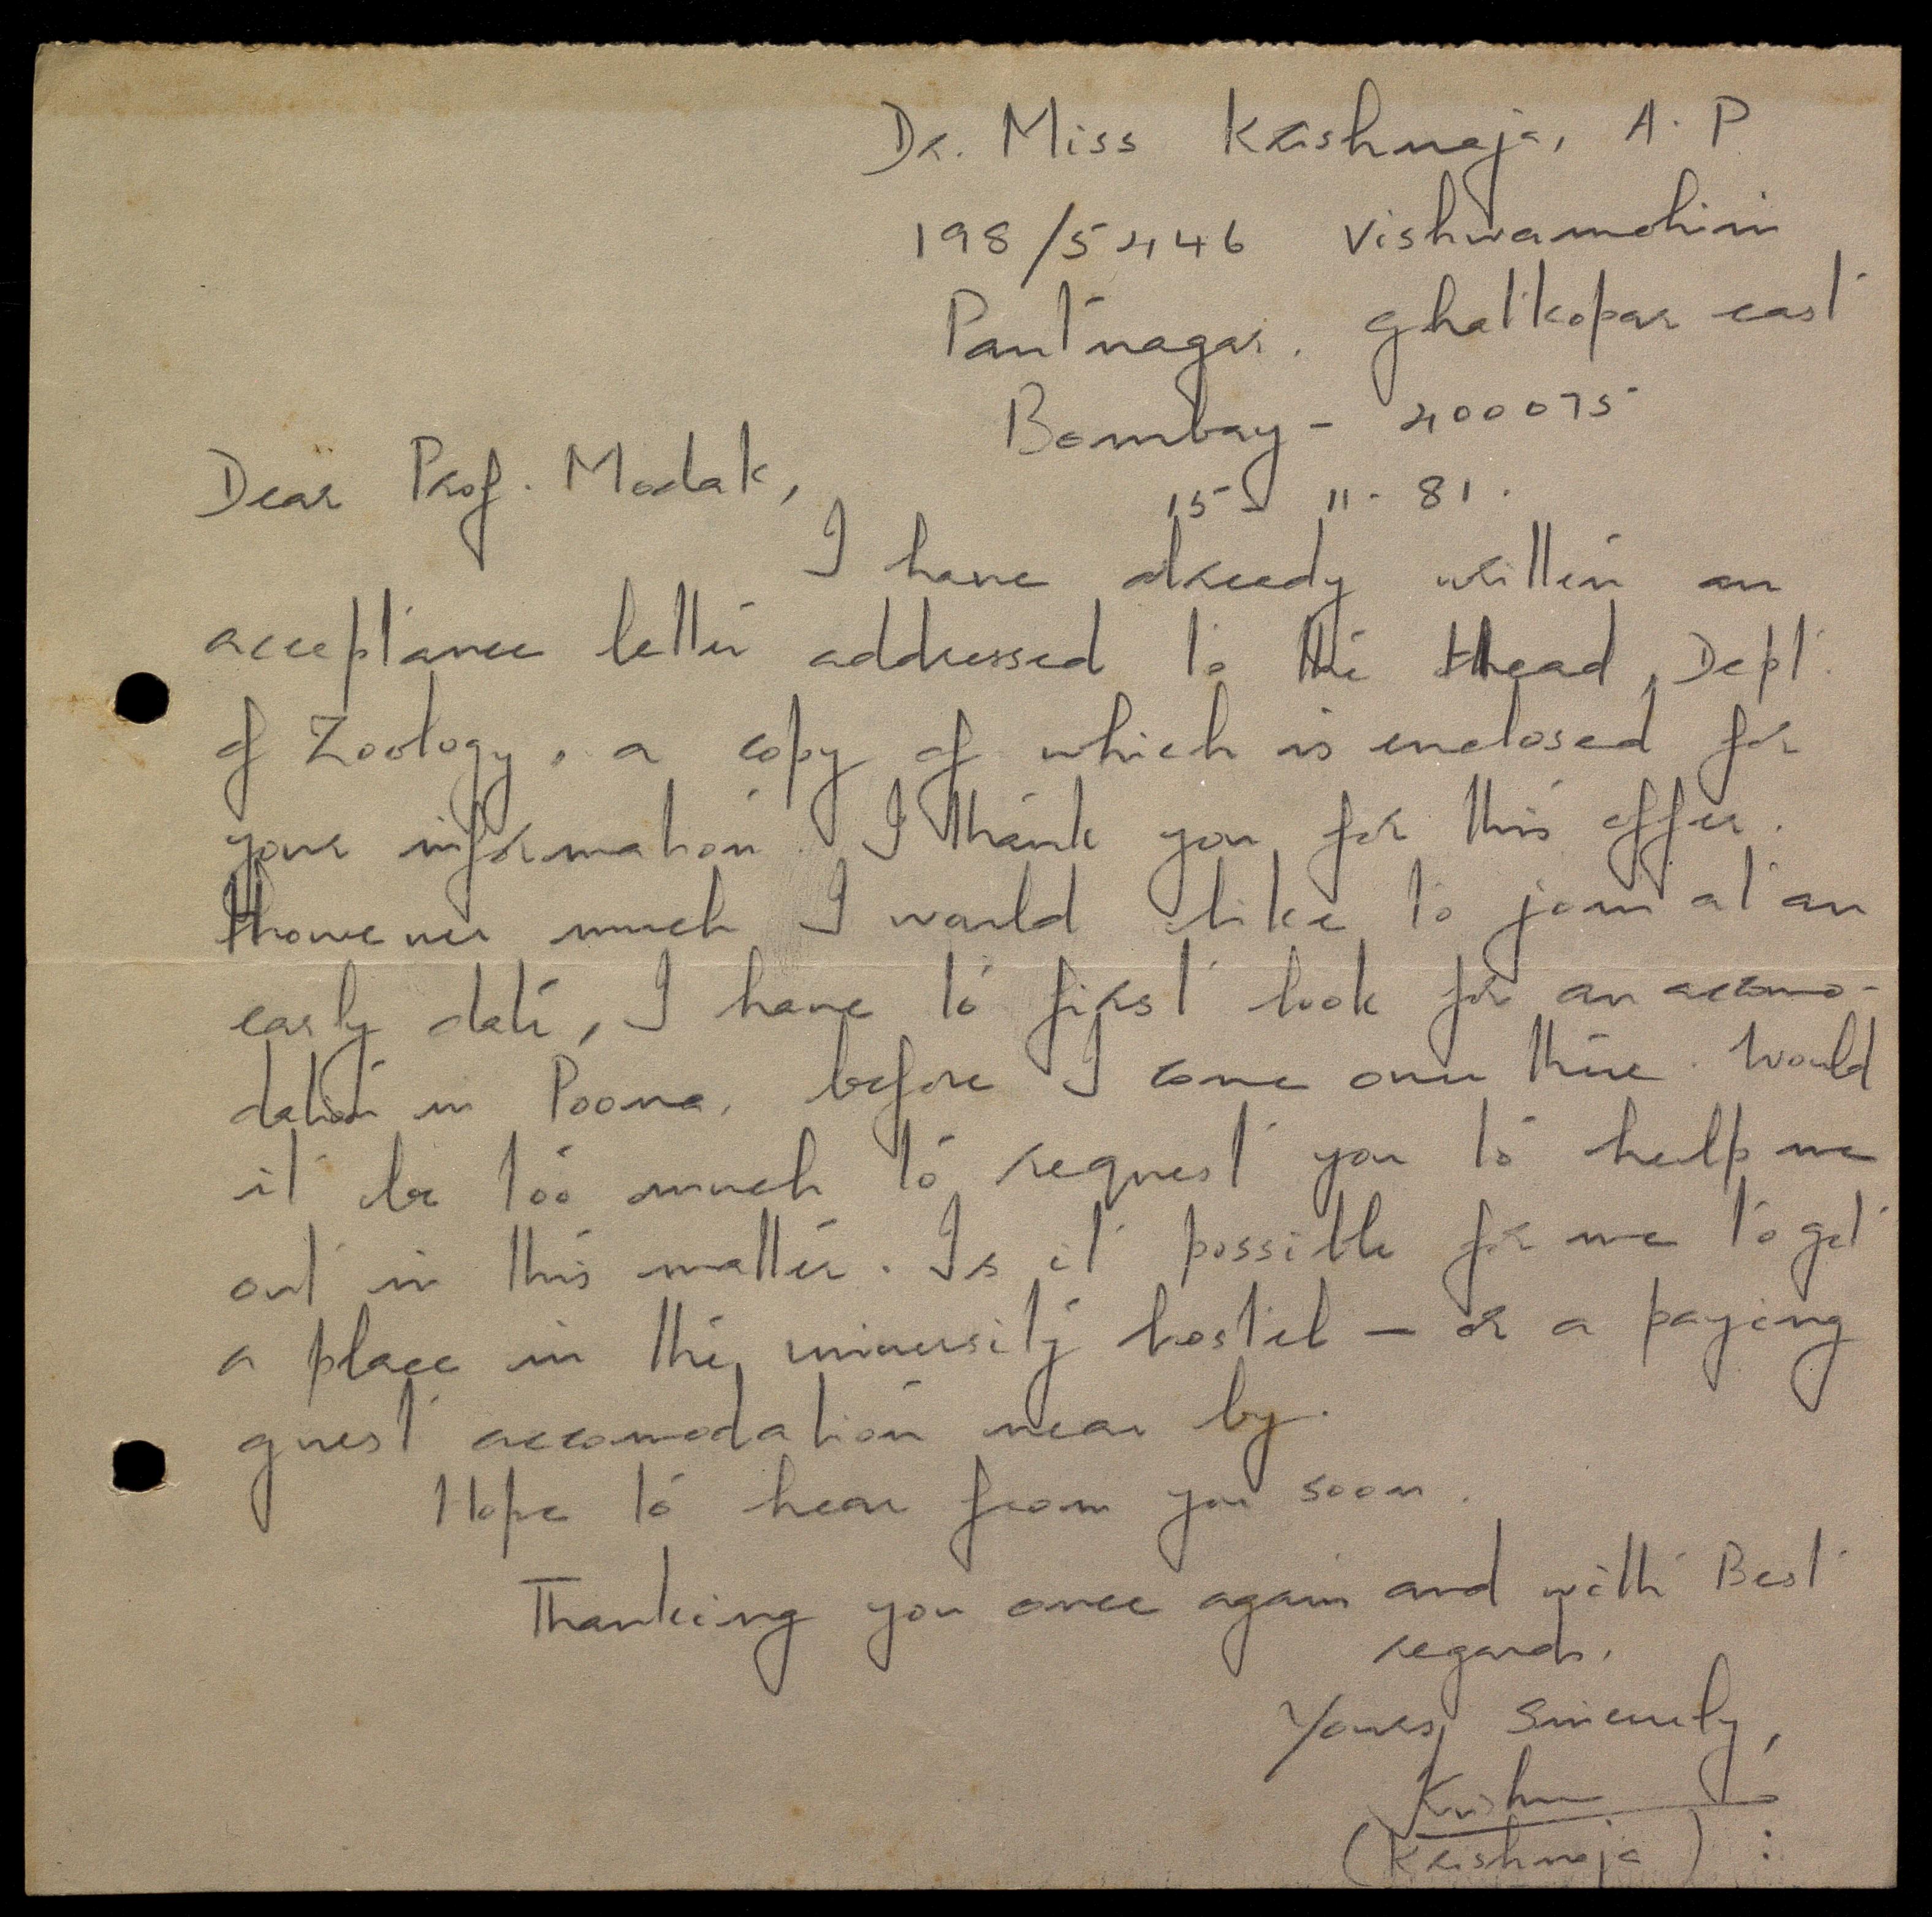 Dr. Miss Krishnaja, A. P
198/5446 Vishwamohini
Pantnagar. Ghatkopar east
Bombay - 400075
15 - 11 - 81.
Dear Prof. Modak,
I have already written an
acceptance letter addressed to the Head, Dept.
of Zoology, a copy of which is enclosed for
your information. I thank you for this offer.
However much I would like to join at an
early date, I have to first look for an accomo-
dation in Poona, before I come over there. Would
it be too much to request you to help me
out in this matter. Is it possible for me to get
a place in the university hostel - or a paying
guest accomodation near by.
Hope to hear from you soon.
Thanking you once again and with Best
regards.
Yours Sincerely,
Krishna
(Krishnaja) :